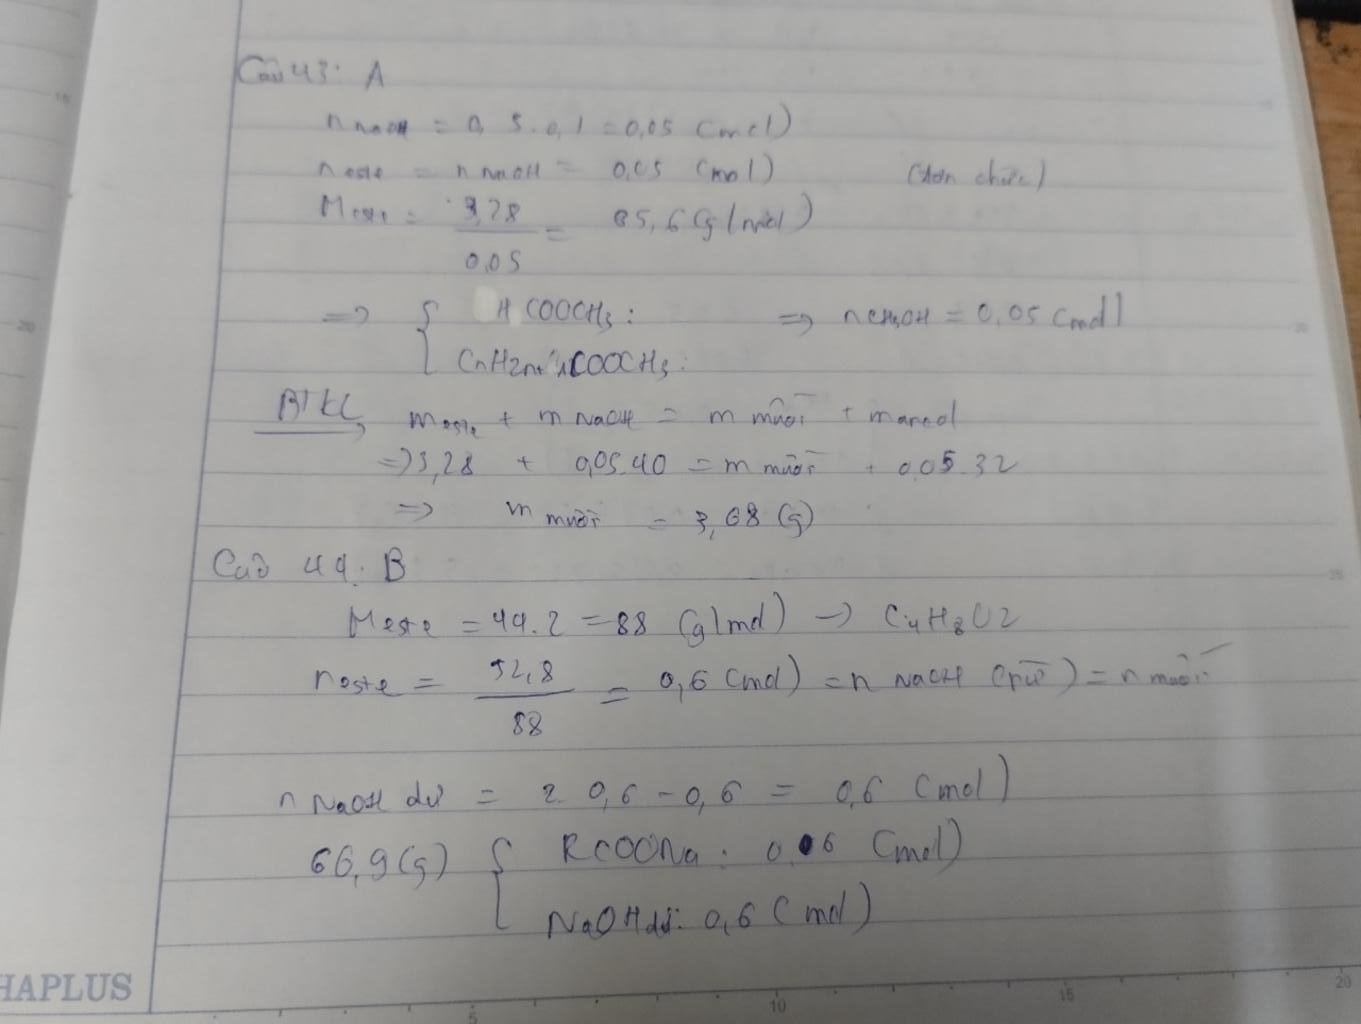 Câu 43: A
n NaOH = 0,5.0,1 = 0,05 (mol)
n este = n NaOH = 0,05 (mol) (đơn chức)
M este = 3,28 / 0,05 = 65,6 (g/mol)
=> { HCOOCH3: => nCH3OH = 0,05 (mol)
CnH2n+1COOCH3:
BTKL m este + m NaOH = m muối + m ancol
=> 3,28 + 0,05.40 = m muối + 0,05.32
=> m muối = 3,68 (g)
Câu 44: B
M este = 44.2 = 88 (g/mol) -> C4H8O2
n este = 52,8 / 88 = 0,6 (mol) = n NaOH (pư) = n muối
n NaOH dư = 2.0,6 - 0,6 = 0,6 (mol)
66,9(g) { RCOONa: 0,6 (mol)
NaOH dư: 0,6 (mol)
HAPLUS
5 10 15 20